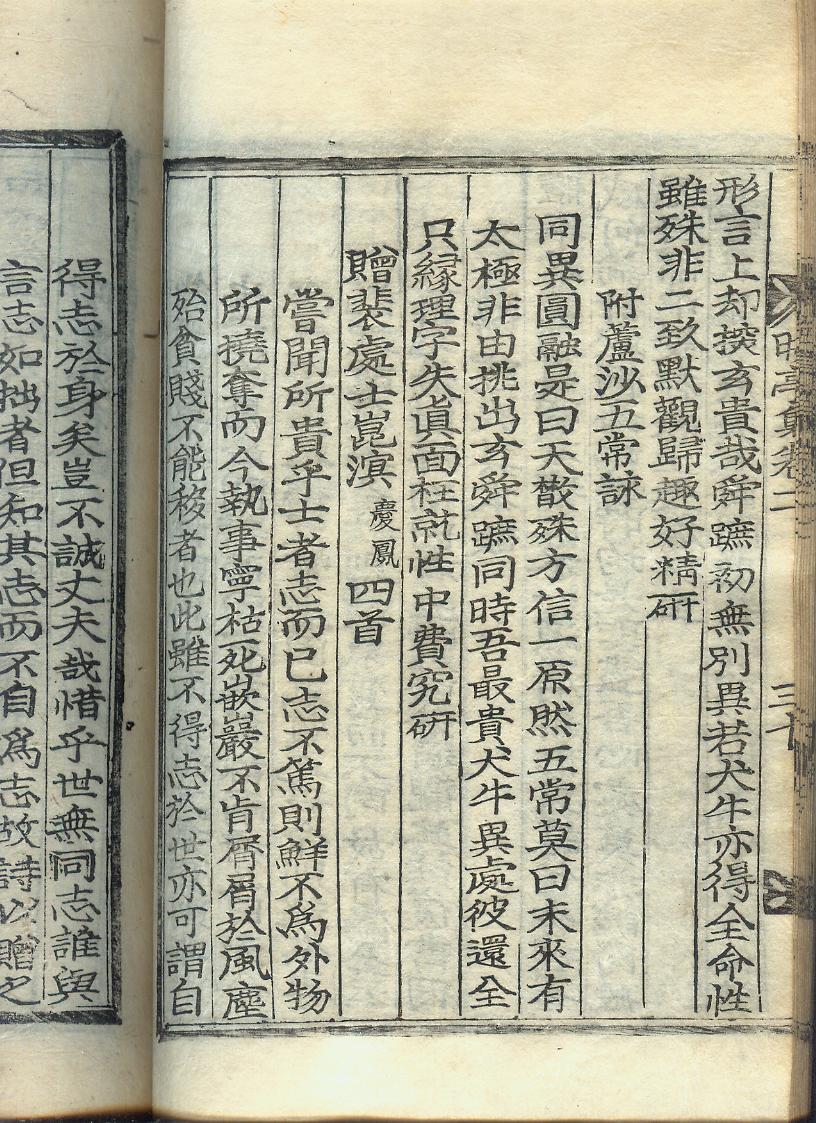 亭集卷二 三十
形言上却揆玄貴哉舜蹠初無別異若犬牛亦得全命性
雖殊非二致默觀歸趣好精研
附蘆沙五常詠
同異圓融是曰天散殊方信一原然五常莫曰末來有
太極非由挑出玄舜蹠同時吾最貴犬牛異處彼還全
只緣理字失眞面枉就性中費究研
贈裴處士崑溟 慶鳳 四首
嘗聞所貴乎士者志而已志不篤則鮮不爲外物
所撓奪而今執事寧枯死嵌巖不肯屑屑於風塵
殆貧賤不能移者也此雖不得志於世亦可謂自
得志於身矣豈不誠丈夫哉惜乎世無同志誰與
言志如拙者但知其志而不自爲志故詩以贈之